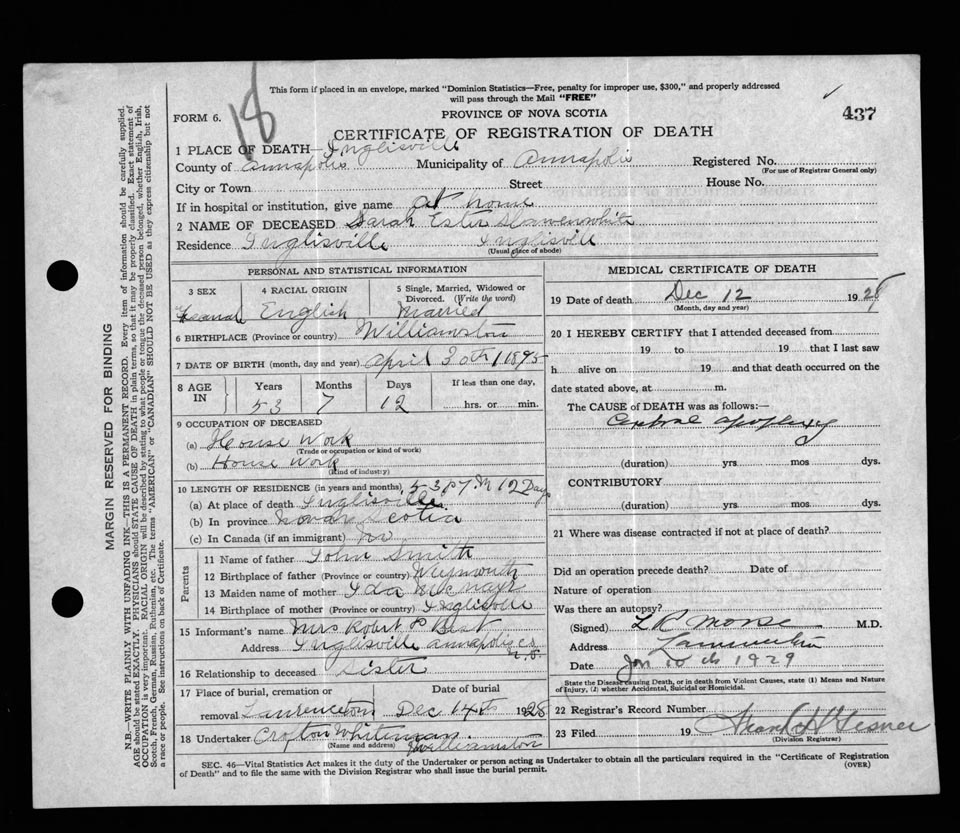 This form if placed in an envelope, marked "Dominion Statistics—Free, penalty for improper use, $300," and properly addressed
will pass through the Mail "FREE"
18
437
FORM 6.
PROVINCE OF NOVA SCOTIA
CERTIFICATE OF REGISTRATION OF DEATH
1 PLACE OF DEATH—Inglisville
County of Annapolis Municipality of Annapolis Registered No.
(For use of Registrar General only)
City or Town Street House No.
If in hospital or institution, give name at home
2 NAME OF DECEASED Sarah Ester Slawenwhite
Residence Inglisville Inglisvill
(Usual place of abode)
PERSONAL AND STATISTICAL INFORMATION
3 SEX 4 RACIAL ORIGIN 5 Single, Married, Widowed or
Divorced. (Write the word)
English Married
6 BIRTHPLACE (Province or country) Williamston
7 DATE OF BIRTH (month, day and year) April 30th 1895
8 AGE IN Years Months Days If less than one day,
53 7 12 hrs. or min.
9 OCCUPATION OF DECEASED
(a) House Work
(Trade or occupation or kind of work)
(b) House Work
(Kind of industry)
10 LENGTH OF RESIDENCE (in years and months) 53 7 M 12 Days
(a) At place of death Inglisville
(b) In province Nova Scotia
(c) In Canada (if an immigrant) no
Parents
11 Name of father John Smith
12 Birthplace of father (Province or country) Weymouth
13 Maiden name of mother Ida
14 Birthplace of mother (Province or country) Inglisville
15 Informant's name Mrs Robert P Best
Address Inglisville Annapolis co
N.S.
16 Relationship to deceased Sister
17 Place of burial, cremation or Date of burial
removal Lawrencetown Dec 14th 1928
18 Undertaker Crofton Whitman
(Name and address) Williamston
MEDICAL CERTIFICATE OF DEATH
19 Date of death Dec 12 1928
(Month, day and year)
20 I HEREBY CERTIFY that I attended deceased from
19 to 19 that I last saw
h alive on 19 and that death occurred on the
date stated above, at m.
The CAUSE of DEATH was as follows:—
apoplexy
(duration) yrs mos dys.
CONTRIBUTORY
(duration) yrs mos dys.
21 Where was disease contracted if not at place of death?
Did an operation precede death? Date of
Nature of operation
Was there an autopsy?
(Signed) L R Morse M.D.
Address
Date Jan 10th 1929
State the Disease causing Death, or in death from Violent Causes, state (1) Means and Nature
of Injury, (2) whether Accidental, Suicidal or Homicidal.
22 Registrar's Record Number
23 Filed 19 Frank H Gesner
(Division Registrar)
SEC. 46—Vital Statistics Act makes it the duty of the Undertaker or person acting as Undertaker to obtain all the particulars required in the "Certificate of Registration
of Death" and to file the same with the Division Registrar who shall issue the burial permit.
(OVER)
MARGIN RESERVED FOR BINDING
N.B.—WRITE PLAINLY WITH UNFADING INK—THIS IS A PERMANENT RECORD. Every item of information should be carefully supplied.
AGE should be stated EXACTLY. PHYSICIANS should STATE CAUSE OF DEATH in plain terms, so that it may be properly classified. Exact statement of
OCCUPATION is very important. RACIAL ORIGIN will be described by stating to what people or tongue the deceased person belonged, whether English, Irish,
Scotch, French, German, Russian, Ruthenian, etc. The terms "AMERICAN" or "CANADIAN" SHOULD NOT BE USED as they express citizenship but not
a race or people. See instructions on back of Certificate.